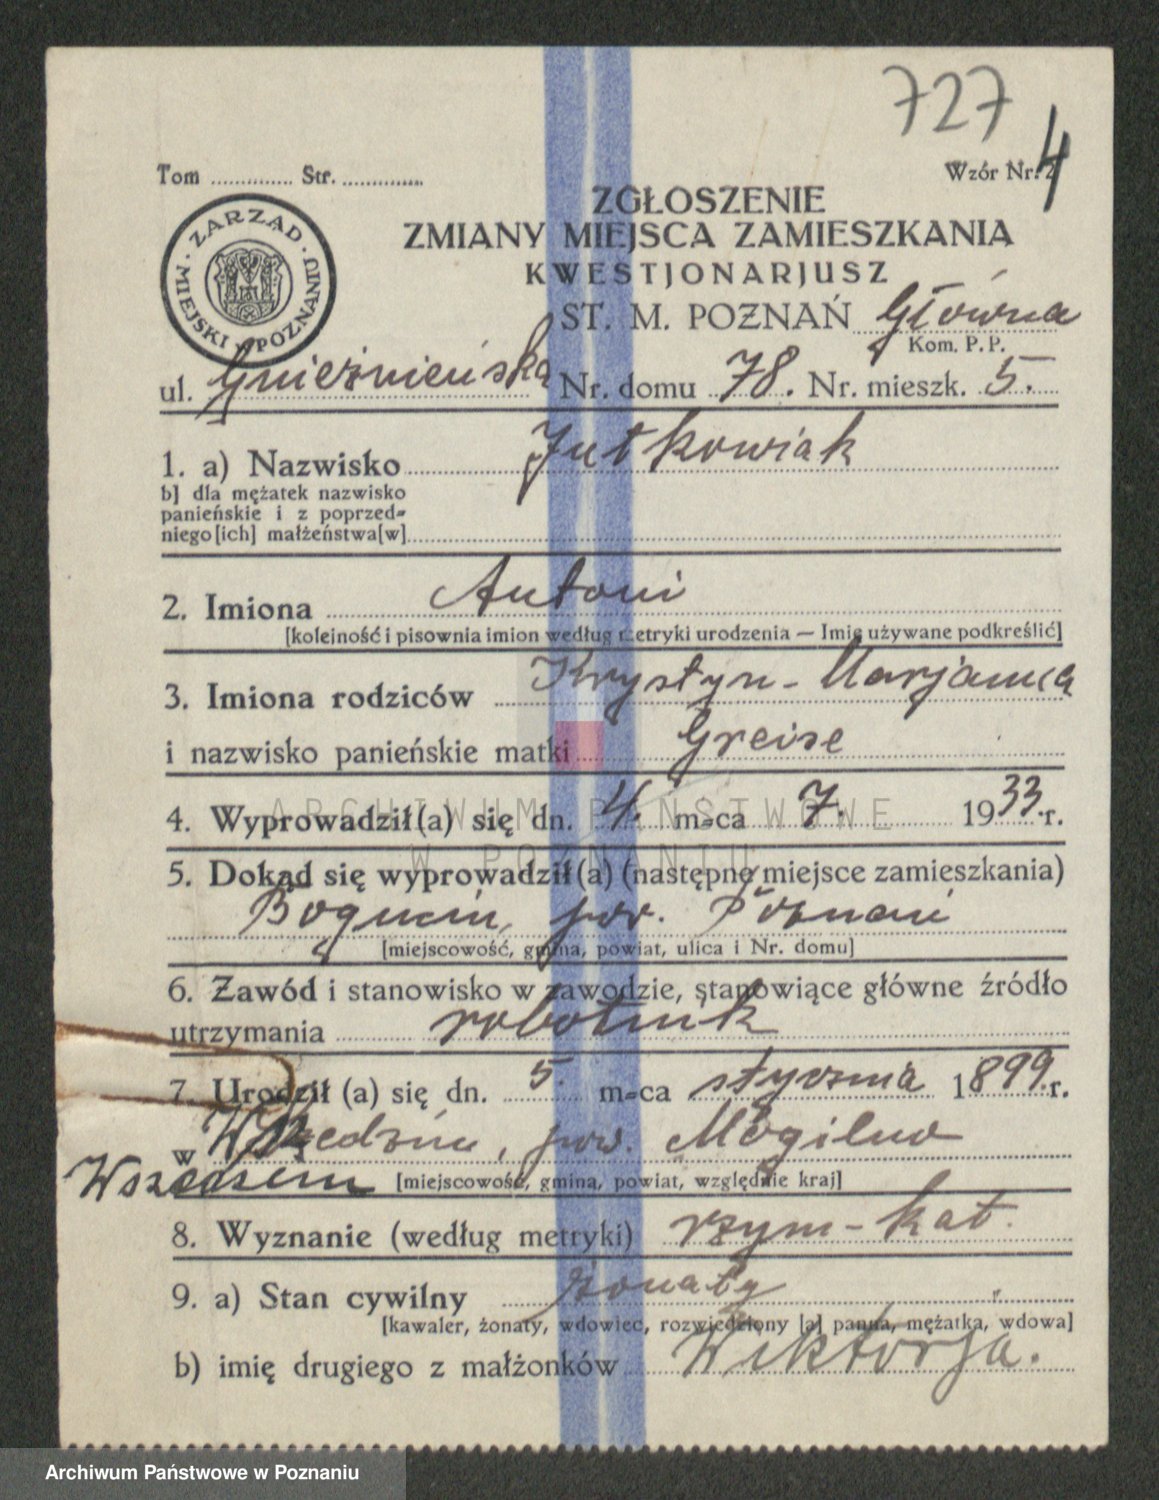 727
4
Tom ............. Str. .............
Wzór Nr. 2
ZARZĄD MIEJSKI W POZNANIU
ZGŁOSZENIE
ZMIANY MIEJSCA ZAMIESZKANIA
KWESTJONARJUSZ
ST. M. POZNAŃ Główna
Kom. P. P.
ul. Gnieźnieńska Nr. domu 78. Nr. mieszk. 5.
1. a) Nazwisko Jutkowiak
b] dla mężatek nazwisko
panieńskie i z poprzed=
niego[ich] małżeństwa[w]
2. Imiona Antoni
[kolejność i pisownia imion według metryki urodzenia — Imię używane podkreślić]
3. Imiona rodziców Krystyn - Marjanna
i nazwisko panieńskie matki Greise
4. Wyprowadził(a) się dn. 4. m=ca 7. 1933 r.
ARCHIWUM PAŃSTWOWE
W POZNANIU
5. Dokąd się wyprowadził(a) (następne miejsce zamieszkania)
Bogucin, pow. Poznań
[miejscowość, gmina, powiat, ulica i Nr. domu]
6. Zawód i stanowisko w zawodzie, stanowiące główne źródło
utrzymania robotnik
7. Urodził (a) się dn. 5. m=ca stycznia 1899 r.
w Wszedzin, pow. Mogilno
Wszedzem [miejscowość, gmina, powiat, względnie kraj]
8. Wyznanie (według metryki) rzym-kat.
9. a) Stan cywilny żonaty
[kawaler, żonaty, wdowiec, rozwiedziony [a] panna, mężatka, wdowa]
b) imię drugiego z małżonków Wiktorja.
Archiwum Państwowe w Poznaniu